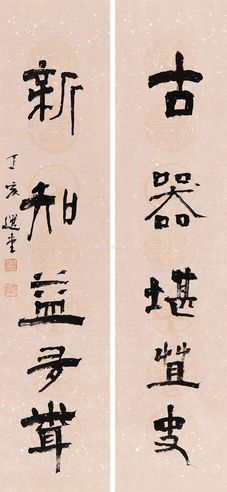 古器堪史
新知益多
丁亥 選堂